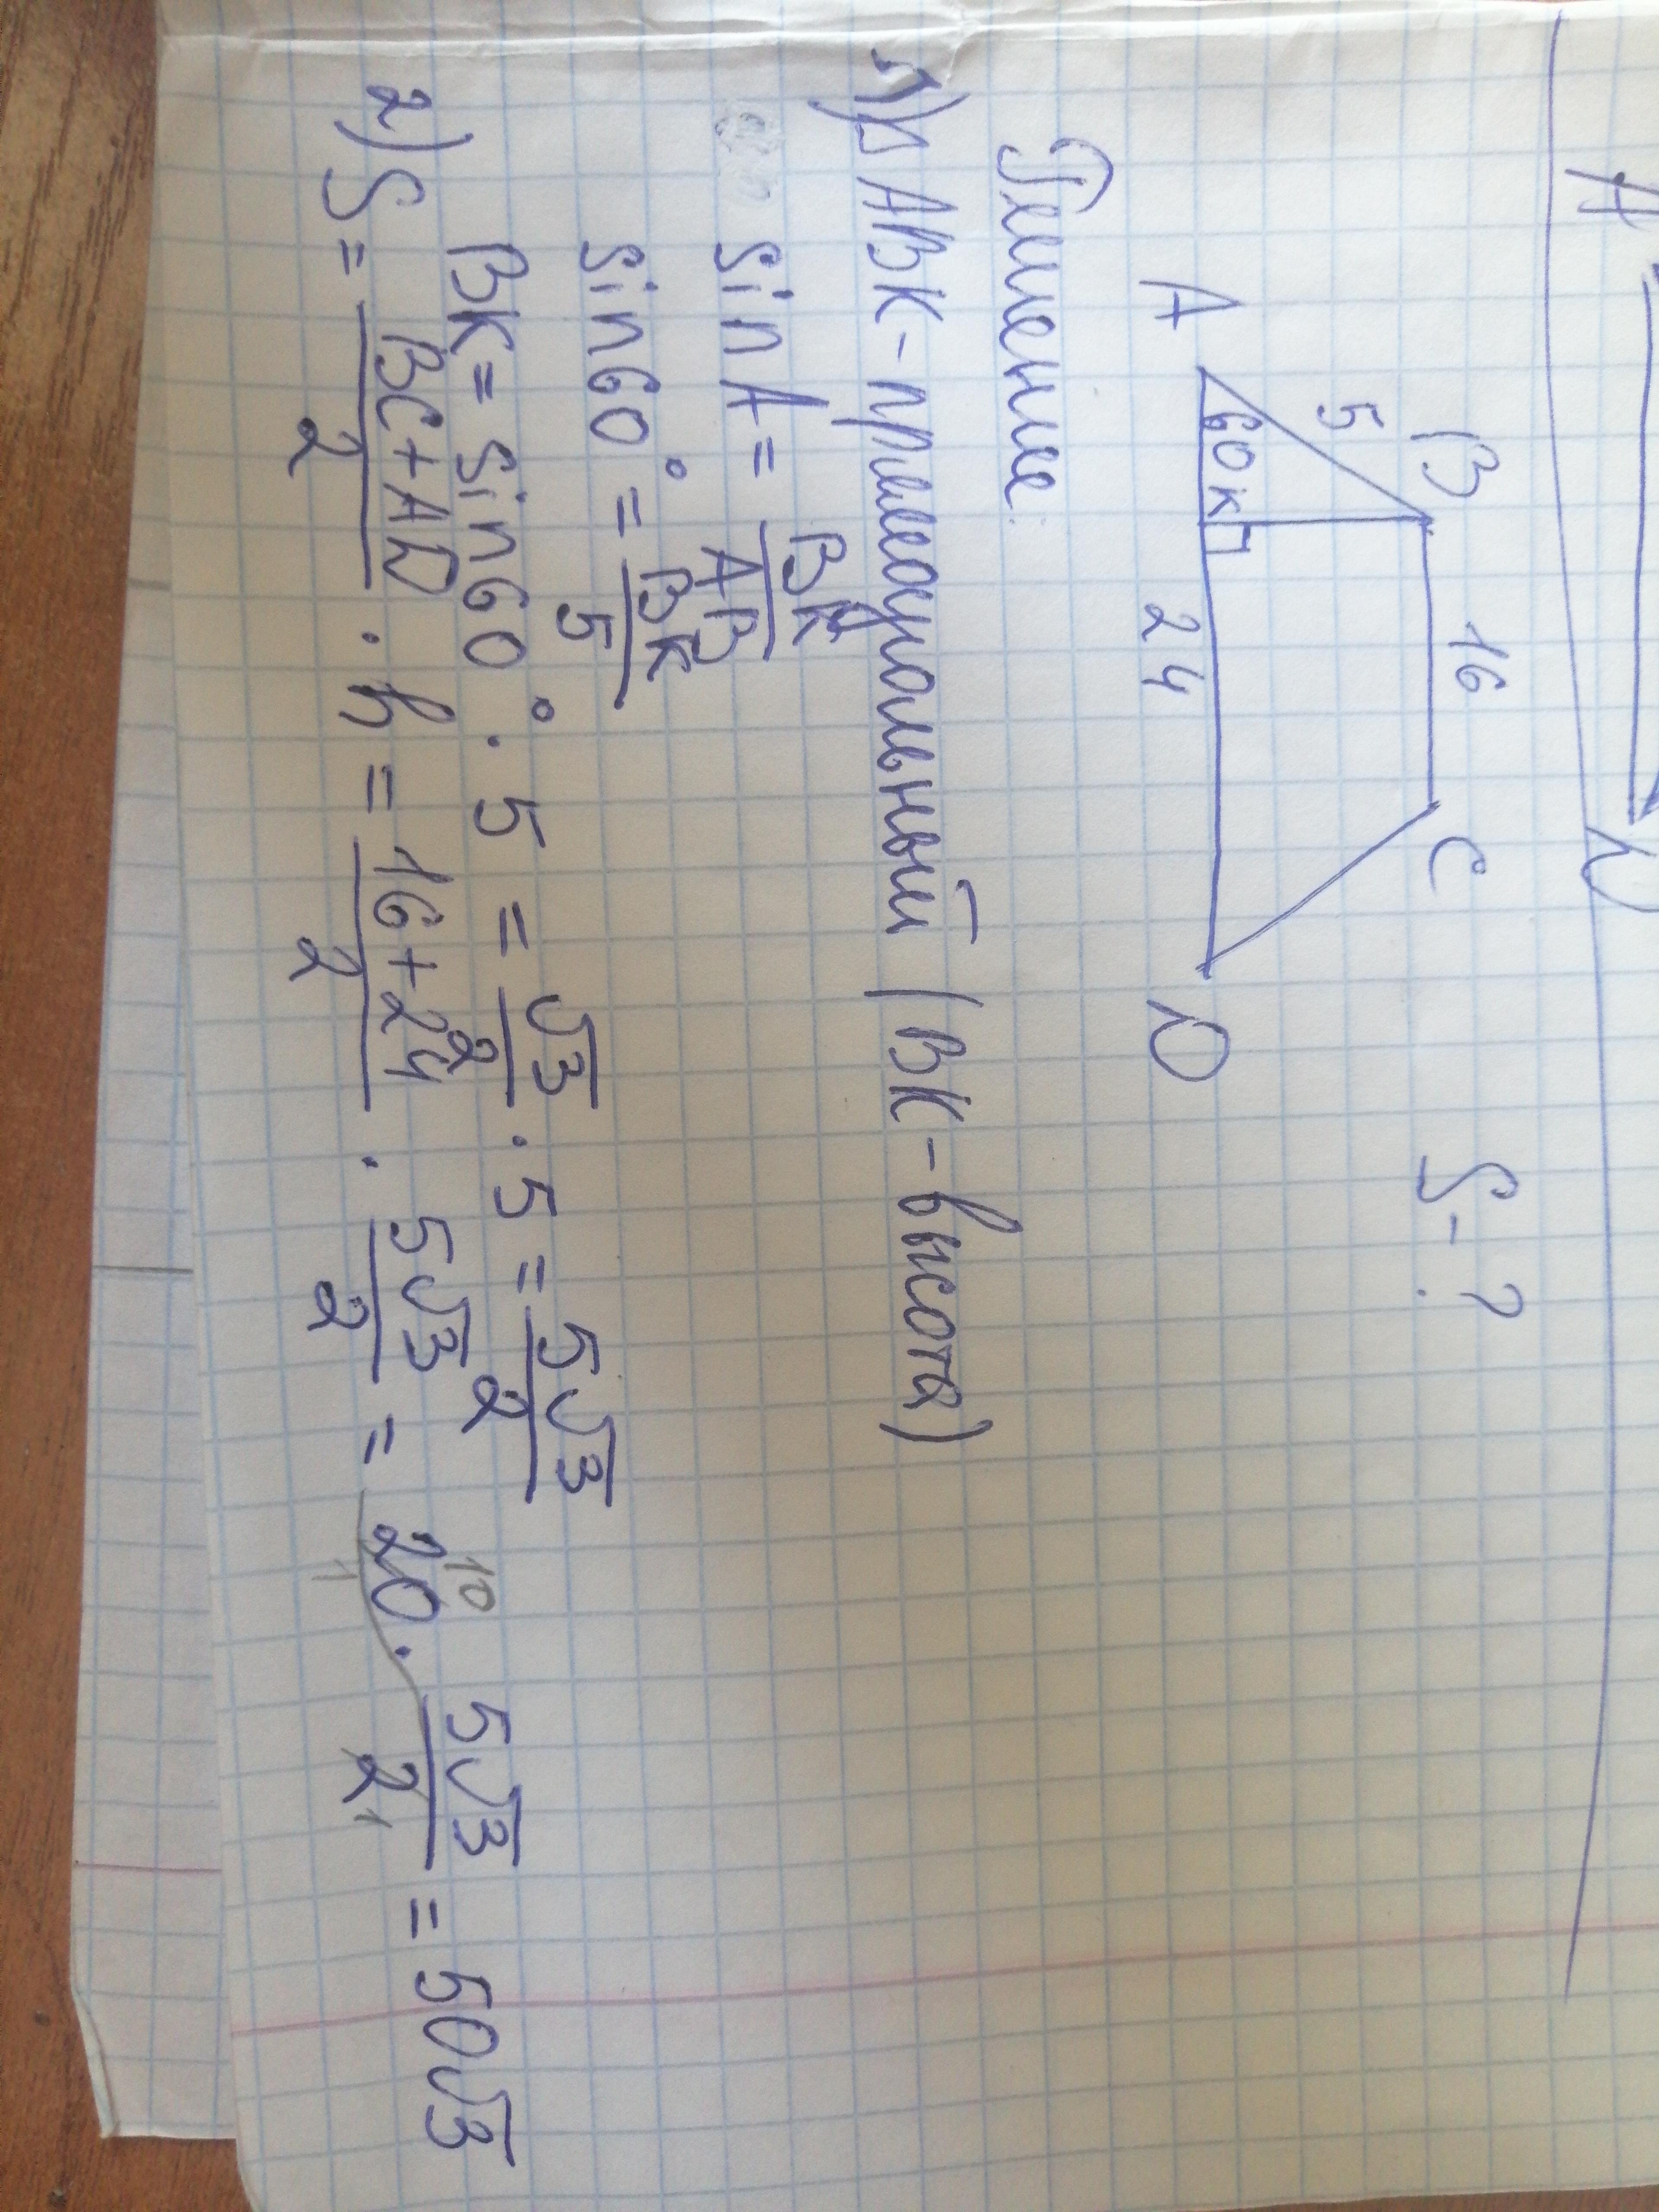 A D
B 16 C S-?
5
A 60 K 24 D
Решение:
1) △ABK - прямоугольный (BK - высота)
sin A = BK/AB
sin 60° = BK/5
BK = sin 60° · 5 = √3/2 · 5 = 5√3/2
2) S = BC + AD/2 · h = 16 + 24/2 · 5√3/2 = 20 · 5√3/2 = 50√3
10 1